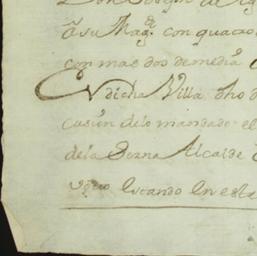 Don Joseph de
â su Mag.d con quatro
con mas dos de media
En dicha Villa dho d
cusion delo mandado el
dela Serna Alcalde
uocando En esta